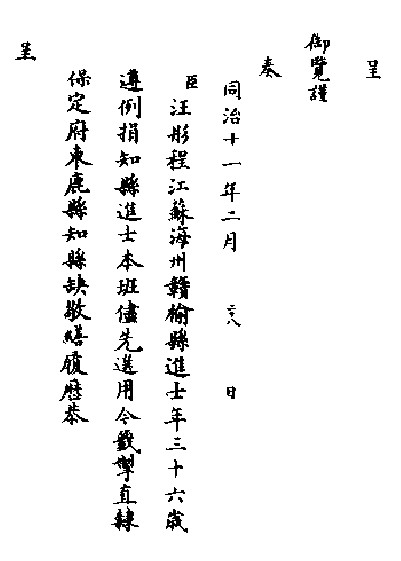 呈
御覽謹
奏
同治十一年二月 廿八 日
臣汪彤程江蘇海州贛榆縣進士年三十六歲
遵例捐知縣進士本班儘先選用今籤掣直隸
保定府束鹿縣知縣缺敬繕履歷恭
呈